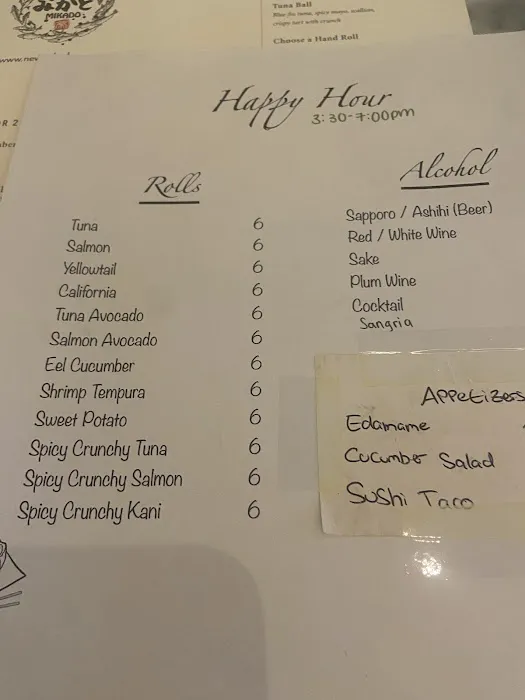 みかど
MIKADO
Tuna Ball
Choose a Hand Roll
Happy Hour
3:30-7:00pm
Rolls
Tuna 6
Salmon 6
Yellowtail 6
California 6
Tuna Avocado 6
Salmon Avocado 6
Eel Cucumber 6
Shrimp Tempura 6
Sweet Potato 6
Spicy Crunchy Tuna 6
Spicy Crunchy Salmon 6
Spicy Crunchy Kani 6
Alcohol
Sapporo / Ashihi (Beer)
Red / White Wine
Sake
Plum Wine
Cocktail
Sangria
Appetizers
Edamame
Cucumber Salad
Sushi Taco